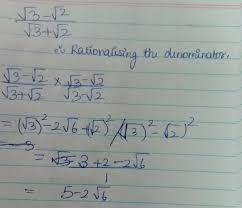 √3-√2
√3+√2
∴ Rationalising the denominator.
√3-√2 × √3-√2
√3+√2   √3-√2
= (√3)² - 2√6 + (√2)² / (√3)² - √2)²
= 3 + 2 - 2√6
1
= 5-2√6